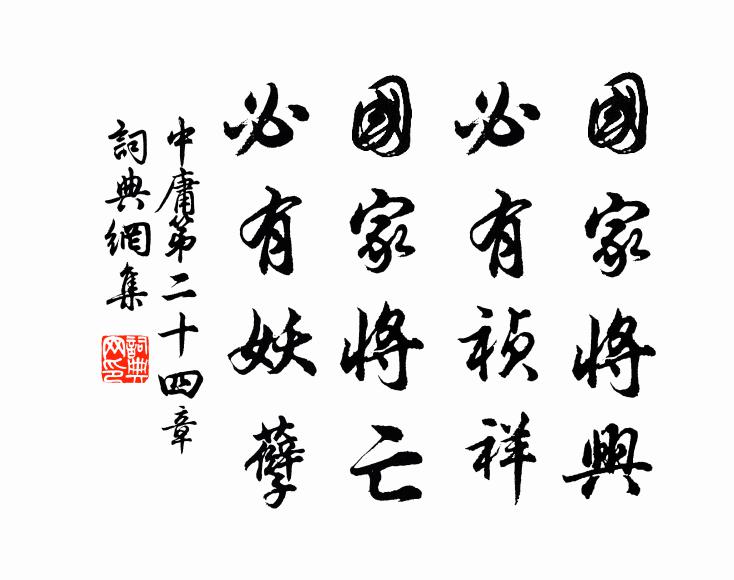 國家將興
必有禎祥
國家將亡
必有妖孽
中庸第二十四章
詞典網集
詞典網印